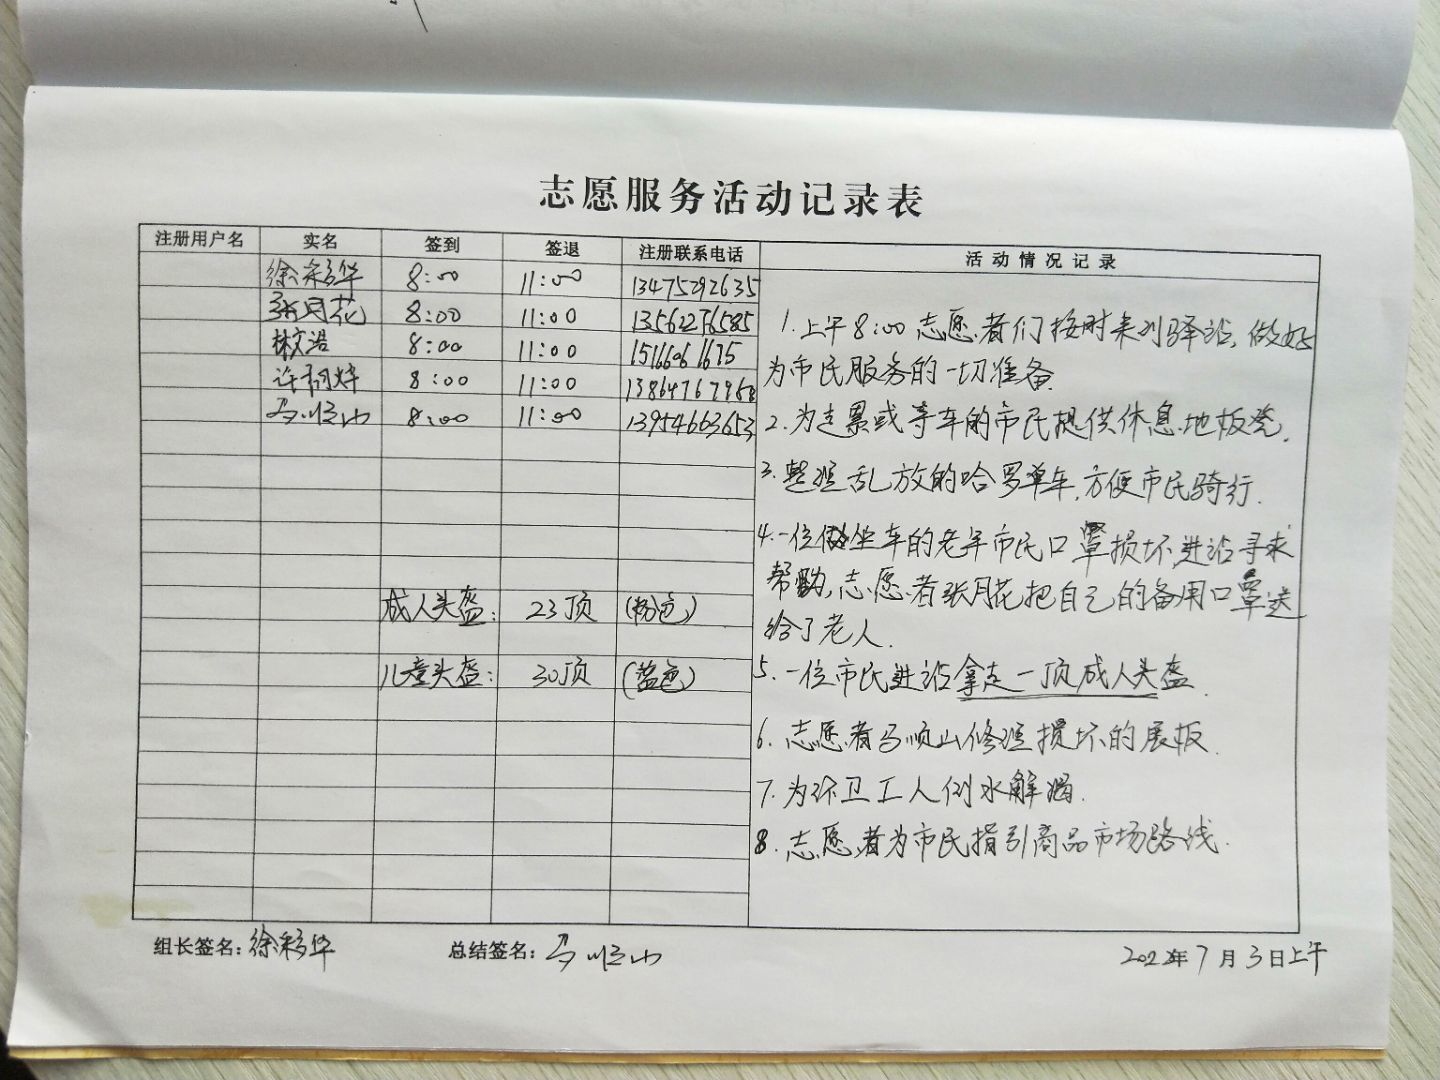 志愿服务活动记录表
注册用户名 实名 签到 签退 注册联系电话 活动情况记录
徐彩华 8:00 11:00 13475292635
张月花 8:00 11:00 13562276585
林文浩 8:00 11:00 1516606 1675
许 8:00 11:00
马顺山 8:00 11:00 13954663653
成人头盔: 23顶 (粉色)
儿童头盔: 30顶 (蓝色)
1.上午8:00志愿者们按时来到驿站,做好
为市民服务的一切准备
2.为走累或等车的市民提供休息地板凳.
3.整理乱放的哈罗单车,方便市民骑行.
4.一位坐车的老年市民口罩损坏,进站寻求
帮助,志愿者张月花把自己的备用口罩送
给了老人.
5.一位市民进站拿走一顶成人头盔.
6.志愿者马顺山修理损坏的展板.
7.为环卫工人倒水解渴.
8.志愿者为市民指引商品市场路线.
组长签名:徐彩华 总结签名:马顺山 2022年7月3日上午